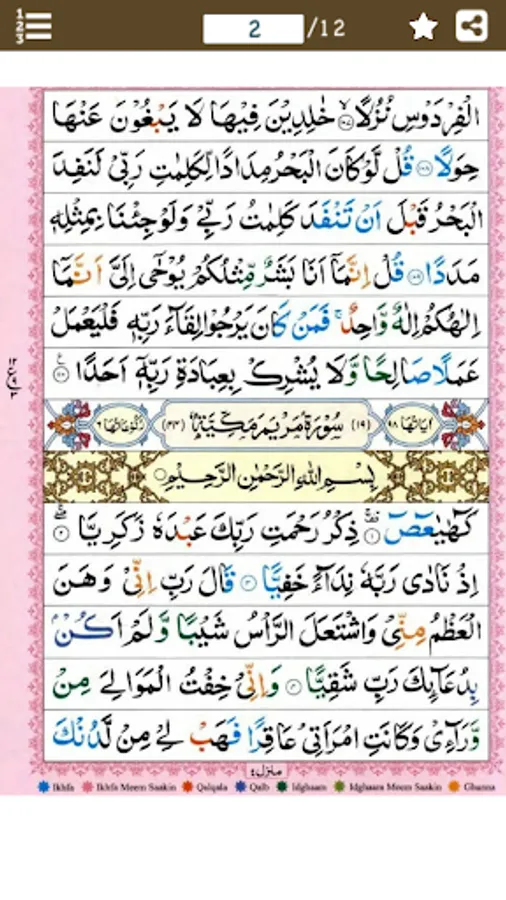 2 /12
الْفِرْدَوْسِ نُزُلًا ۙ۝۱۰۷ خٰلِدِيْنَ فِيْهَا لَا يَبْغُوْنَ عَنْهَا
حِوَلًا ۝۱۰۸ قُلْ لَّوْ كَانَ الْبَحْرُ مِدَادًا لِّكَلِمٰتِ رَبِّيْ لَنَفِدَ
الْبَحْرُ قَبْلَ اَنْ تَنْفَدَ كَلِمٰتُ رَبِّيْ وَلَوْ جِئْنَا بِمِثْلِهٖ
مَدَدًا ۝۱۰۹ قُلْ اِنَّمَاۤ اَنَا بَشَرٌ مِّثْلُكُمْ يُوْحٰۤى اِلَيَّ اَنَّمَاۤ
اِلٰهُكُمْ اِلٰهٌ وَّاحِدٌ ۚ فَمَنْ كَانَ يَرْجُوْا لِقَآءَ رَبِّهٖ فَلْيَعْمَلْ
عَمَلًا صَالِحًا وَّلَا يُشْرِكْ بِعِبَادَةِ رَبِّهٖۤ اَحَدًا ۝۱۱۰
اٰيَاتُهَا ۹۸ (۱۹) سُوْرَةُ مَرْيَمَ مَكِّيَّةٌ (۴۴) رُكُوْعَاتُهَا ۶
بِسْمِ اللّٰهِ الرَّحْمٰنِ الرَّحِيْمِ
كٓهٰيٰعٓصٓ ۝۱ ذِكْرُ رَحْمَتِ رَبِّكَ عَبْدَهٗ زَكَرِيَّا ۝۲
اِذْ نَادٰى رَبَّهٗ نِدَآءً خَفِيًّا ۝۳ قَالَ رَبِّ اِنِّيْ وَهَنَ
الْعَظْمُ مِنِّيْ وَاشْتَعَلَ الرَّاْسُ شَيْبًا وَّلَمْ اَكُنْۢ
بِدُعَآىِٕكَ رَبِّ شَقِيًّا ۝۴ وَاِنِّيْ خِفْتُ الْمَوَالِيَ مِنْ
وَّرَآءِيْ وَكَانَتِ امْرَاَتِيْ عَاقِرًا فَهَبْ لِيْ مِنْ لَّدُنْكَ
منزل ۴
Ikhfa Ikhfa Meem Saakin Qalqala Qalb Idghaam Idghaam Meem Saakin Ghunna